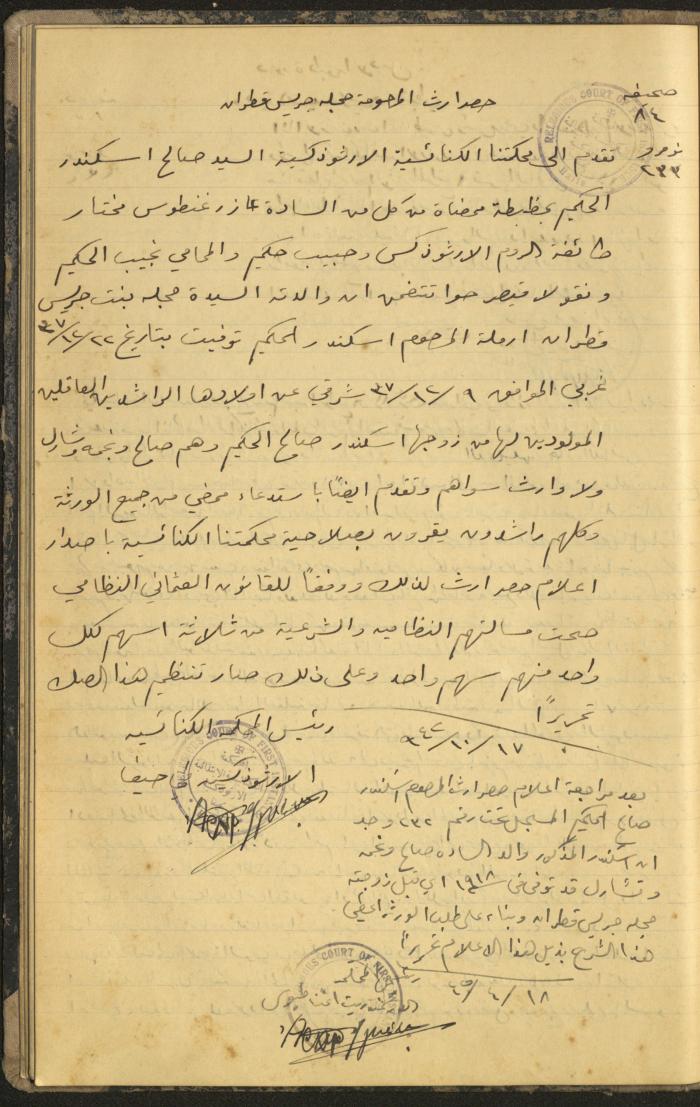 صحيفه
٨٤
نومرو
٢٣٣
حصر ارث المرحومة مجله جريس قطران
تقدم الى محكمتنا الكنائسية الارثوذكسية السيد صالح اسكندر
الحكيم بمظبطة ممضاة من كل من السادة عازر غنطوس مختار
طائفة الروم الارثوذكس وحبيب حكيم والمحامي نجيب الحكيم
ونقولا قيصر حوا تتضمن ان والدته السيدة مجله بنت جريس
قطران ارملة المرحوم اسكندر الحكيم توفيت بتاريخ ٢٢/١٢/٣٧
غربي الموافق ٩/١٢/٣٧ شرقي عن اولادها الراشدين العاقلين
المولودين لها من زوجها اسكندر صالح الحكيم وهم صالح ونجمه وشارل
ولا وارث سواهم وتقدم ايضًا باستدعاء ممضي من جميع الورثة
وكلهم راشدون يقرون بصلاحية محكمتنا الكنائسية باصدار
اعلام حصر ارث لذلك ووفقاً للقانون العثماني النظامي
صحت مسالتهم النظاميه والشرعية من ثلاثة اسهم لكل
واحد منهم سهم واحد وعلى ذلك صار تنظيم هذا الصك
تحريرًا
١٧/١٠/٩٤٢
رئيس المحكمة الكنائسيه
الارثوذكسية في حيفا
RELIGIOUS COURT OF FIRST
بعد مراجعة اعلام حصر ارث المرحوم اسكندر
صالح الحكيم المسجل تحت رقم ٢٣٢ وجد
ان اسكندر المذكور والد السادة صالح ونجمه
وتشارل قد توفى في سنة ١٩١٨ اي قبل زوجته
مجله جريس قطران وبناء على طلب الورثة اعطي
هذا الشرح بذيل هذا الاعلام تحريرًا
١٨/٤/٤٥
رئيس المحكمة
COURT OF FIRST